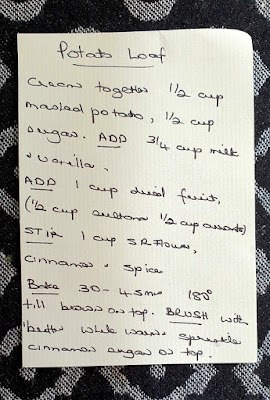 Potato Loaf
Cream together 1/2 cup
mashed potato, 1/2 cup
sugar. ADD 3/4 cup milk
+ vanilla.
ADD 1 cup dried fruit,
(1/2 cup sultana 1/2 cup currants)
STIR 1 cup SR Flour,
Cinnamon + Spice
Bake 30-45 min 180°
till brown on top. BRUSH with
butter while warm + sprinkle
cinnamon sugar on top.